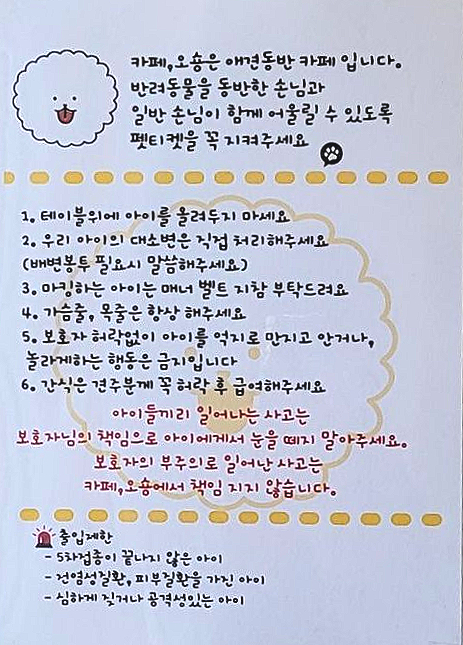 카페,오숑은 애견동반 카페 입니다.
반려동물을 동반한 손님과
일반 손님이 함께 어울릴 수 있도록
펫티켓을 꼭 지켜주세요
1. 테이블위에 아이를 올려두지 마세요
2. 우리 아이의 대소변은 직접 처리해주세요
(배변봉투 필요시 말씀해주세요)
3. 마킹하는 아이는 매너 벨트 지참 부탁드려요
4. 가슴줄, 목줄은 항상 해주세요
5. 보호자 허락없이 아이를 억지로 만지고 안거나,
놀라게하는 행동은 금지입니다
6. 간식은 견주분께 꼭 허락 후 급여해주세요
아이들끼리 일어나는 사고는
보호자님의 책임으로 아이에게서 눈을 떼지 말아주세요.
보호자의 부주의로 일어난 사고는
카페,오숑에서 책임 지지 않습니다.
출입제한
- 5차접종이 끝나지 않은 아이
- 전염성질환, 피부질환을 가진 아이
- 심하게 짖거나 공격성있는 아이